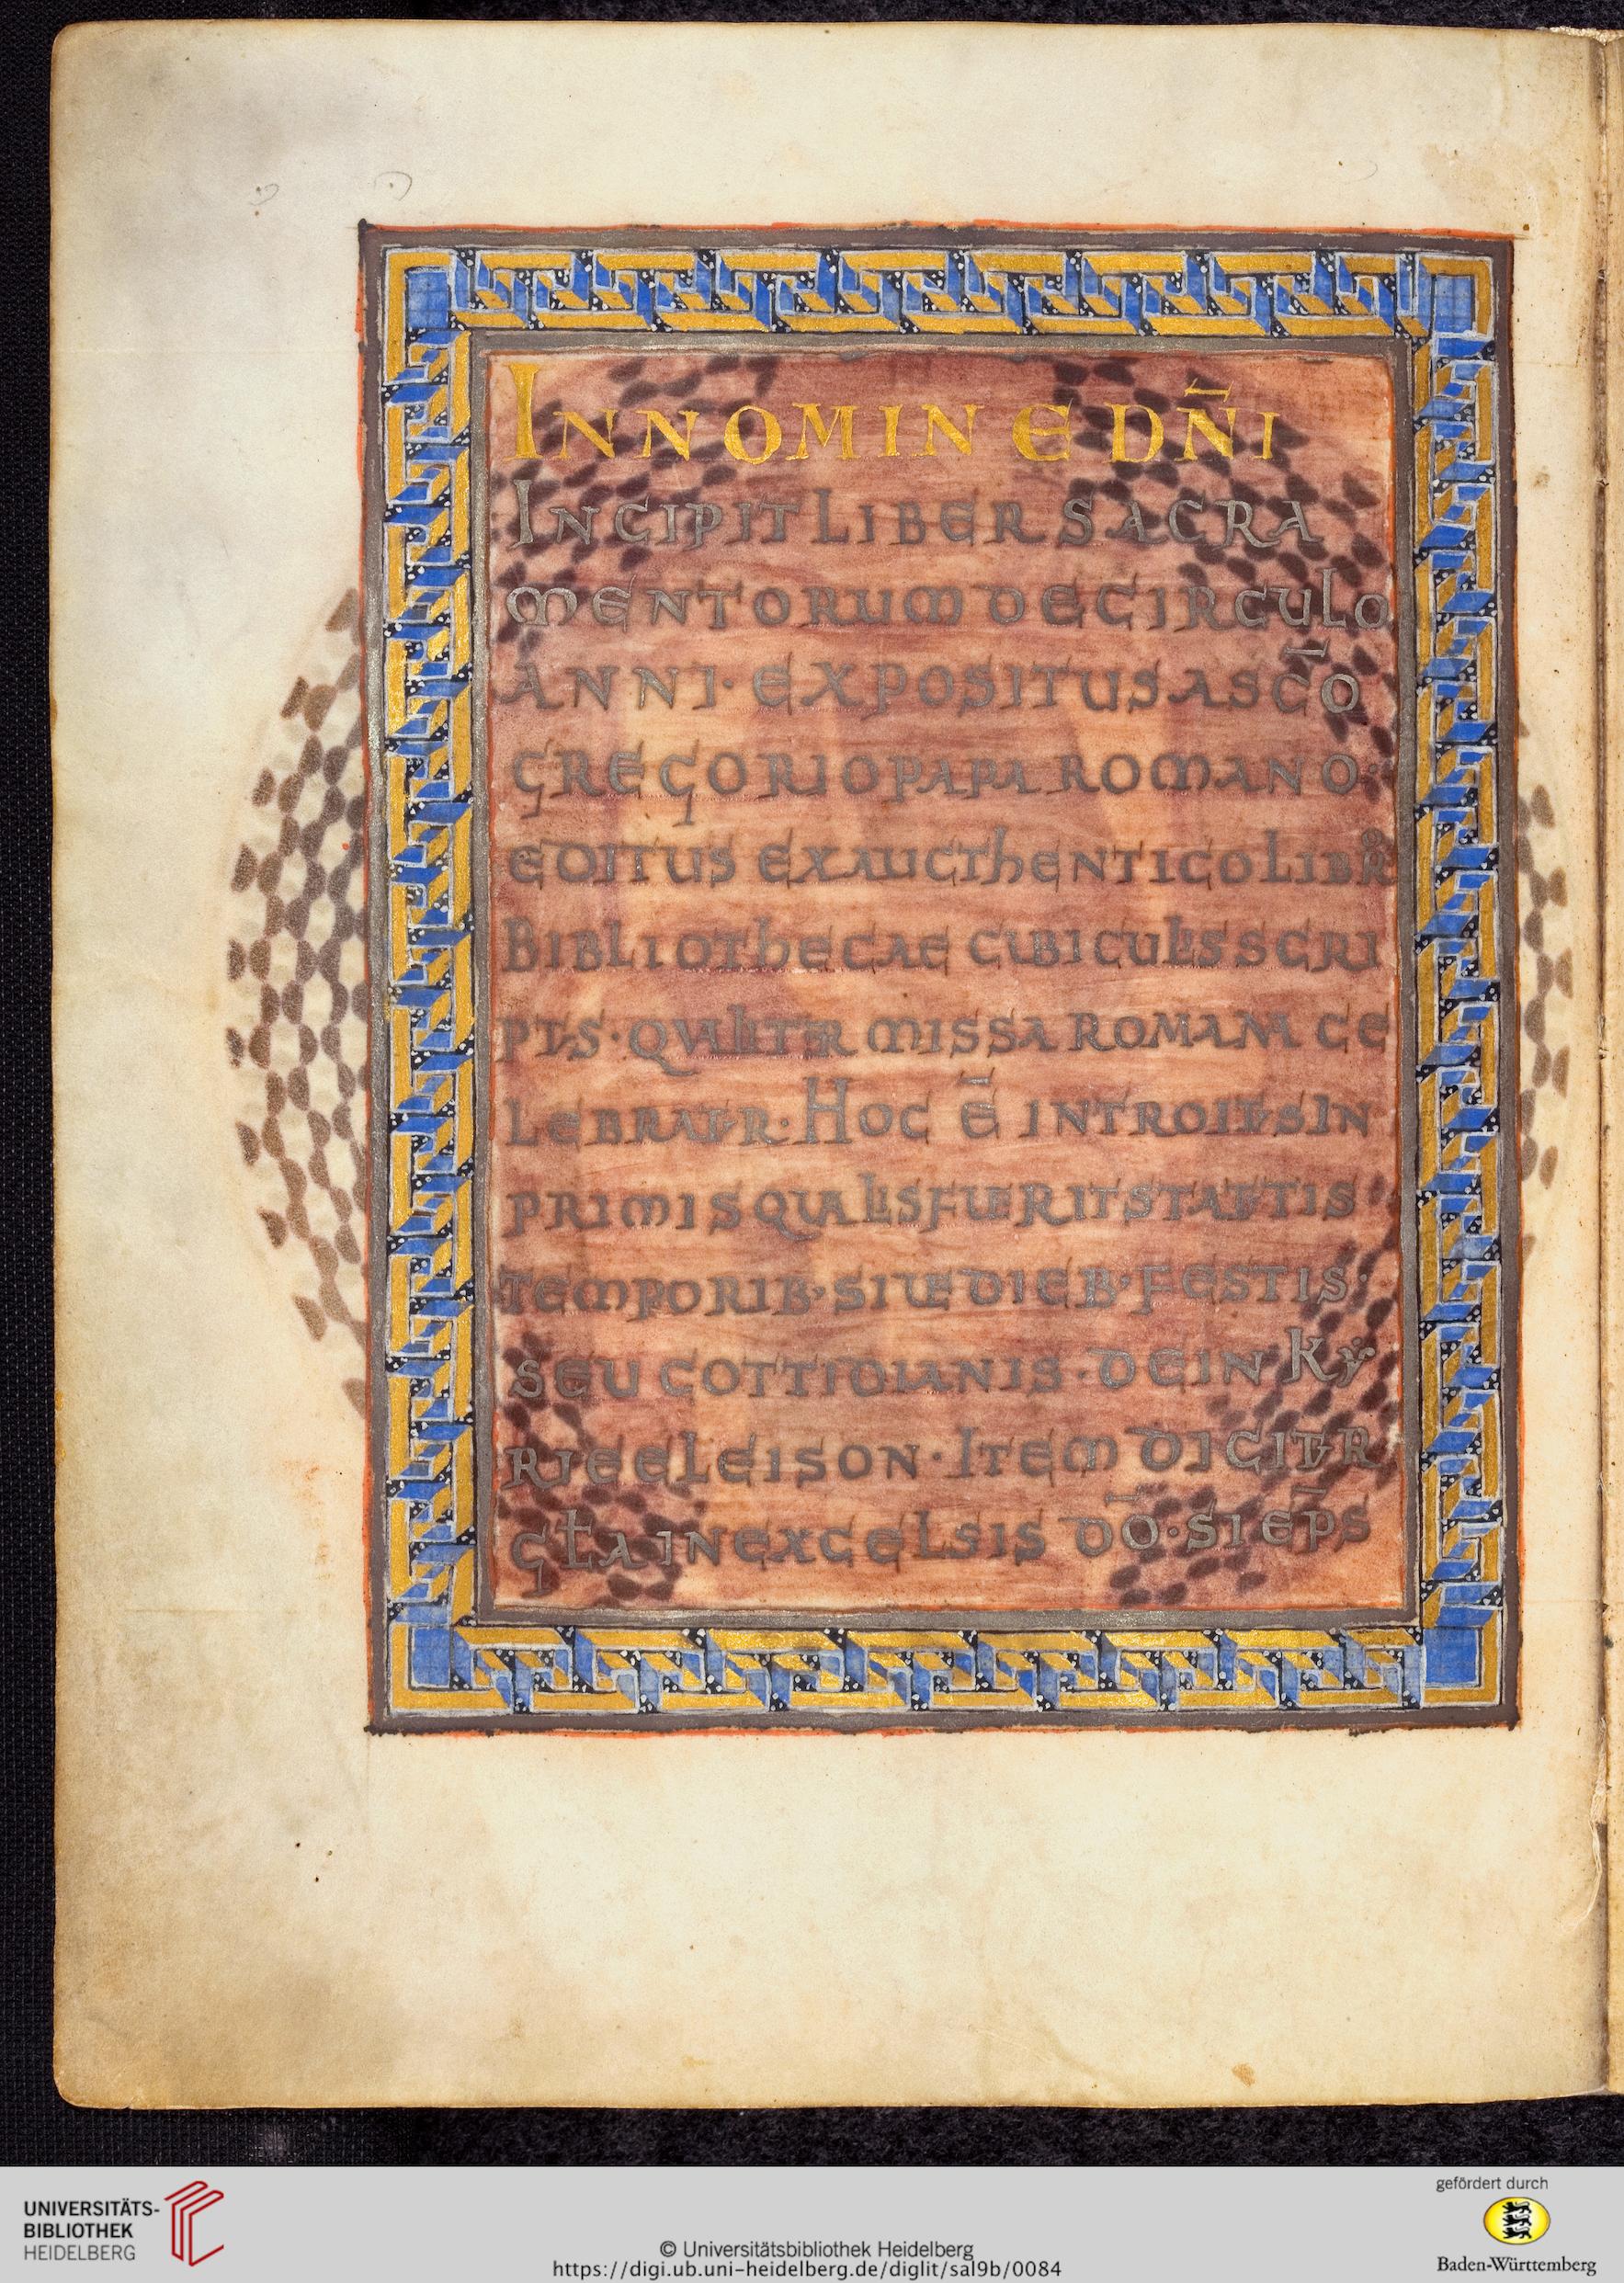 IN NOMINE DN̄I
INCIPIT LIBER SACRA
MENTORUM DE CIRCULO
ANNI· EXPOSITUS A SC̄O
GREGORIO PAPA ROMANO·
EDITUS EX AUCTHENTICO LIBRO
BIBLIOTHECAE CUBICULI S SCRI
PTUS· QUALITER MISSA ROMANA CE
LEBRATUR· HOC Ē INTROITUS IN
PRIMIS QUALIS FUERIT STATUTIS
TEMPORIB· SIUE DIEB· FESTIS·
SEU COTTIDIANIS· DEIN KY
RIEELEISON· ITEM DICITUR
GŁA IN EXCELSIS DŌ· SI EP̄S
UNIVERSITÄTS-
BIBLIOTHEK
HEIDELBERG
© Universitätsbibliothek Heidelberg
https://digi.ub.uni-heidelberg.de/diglit/sal9b/0084
gefördert durch
Baden-Württemberg